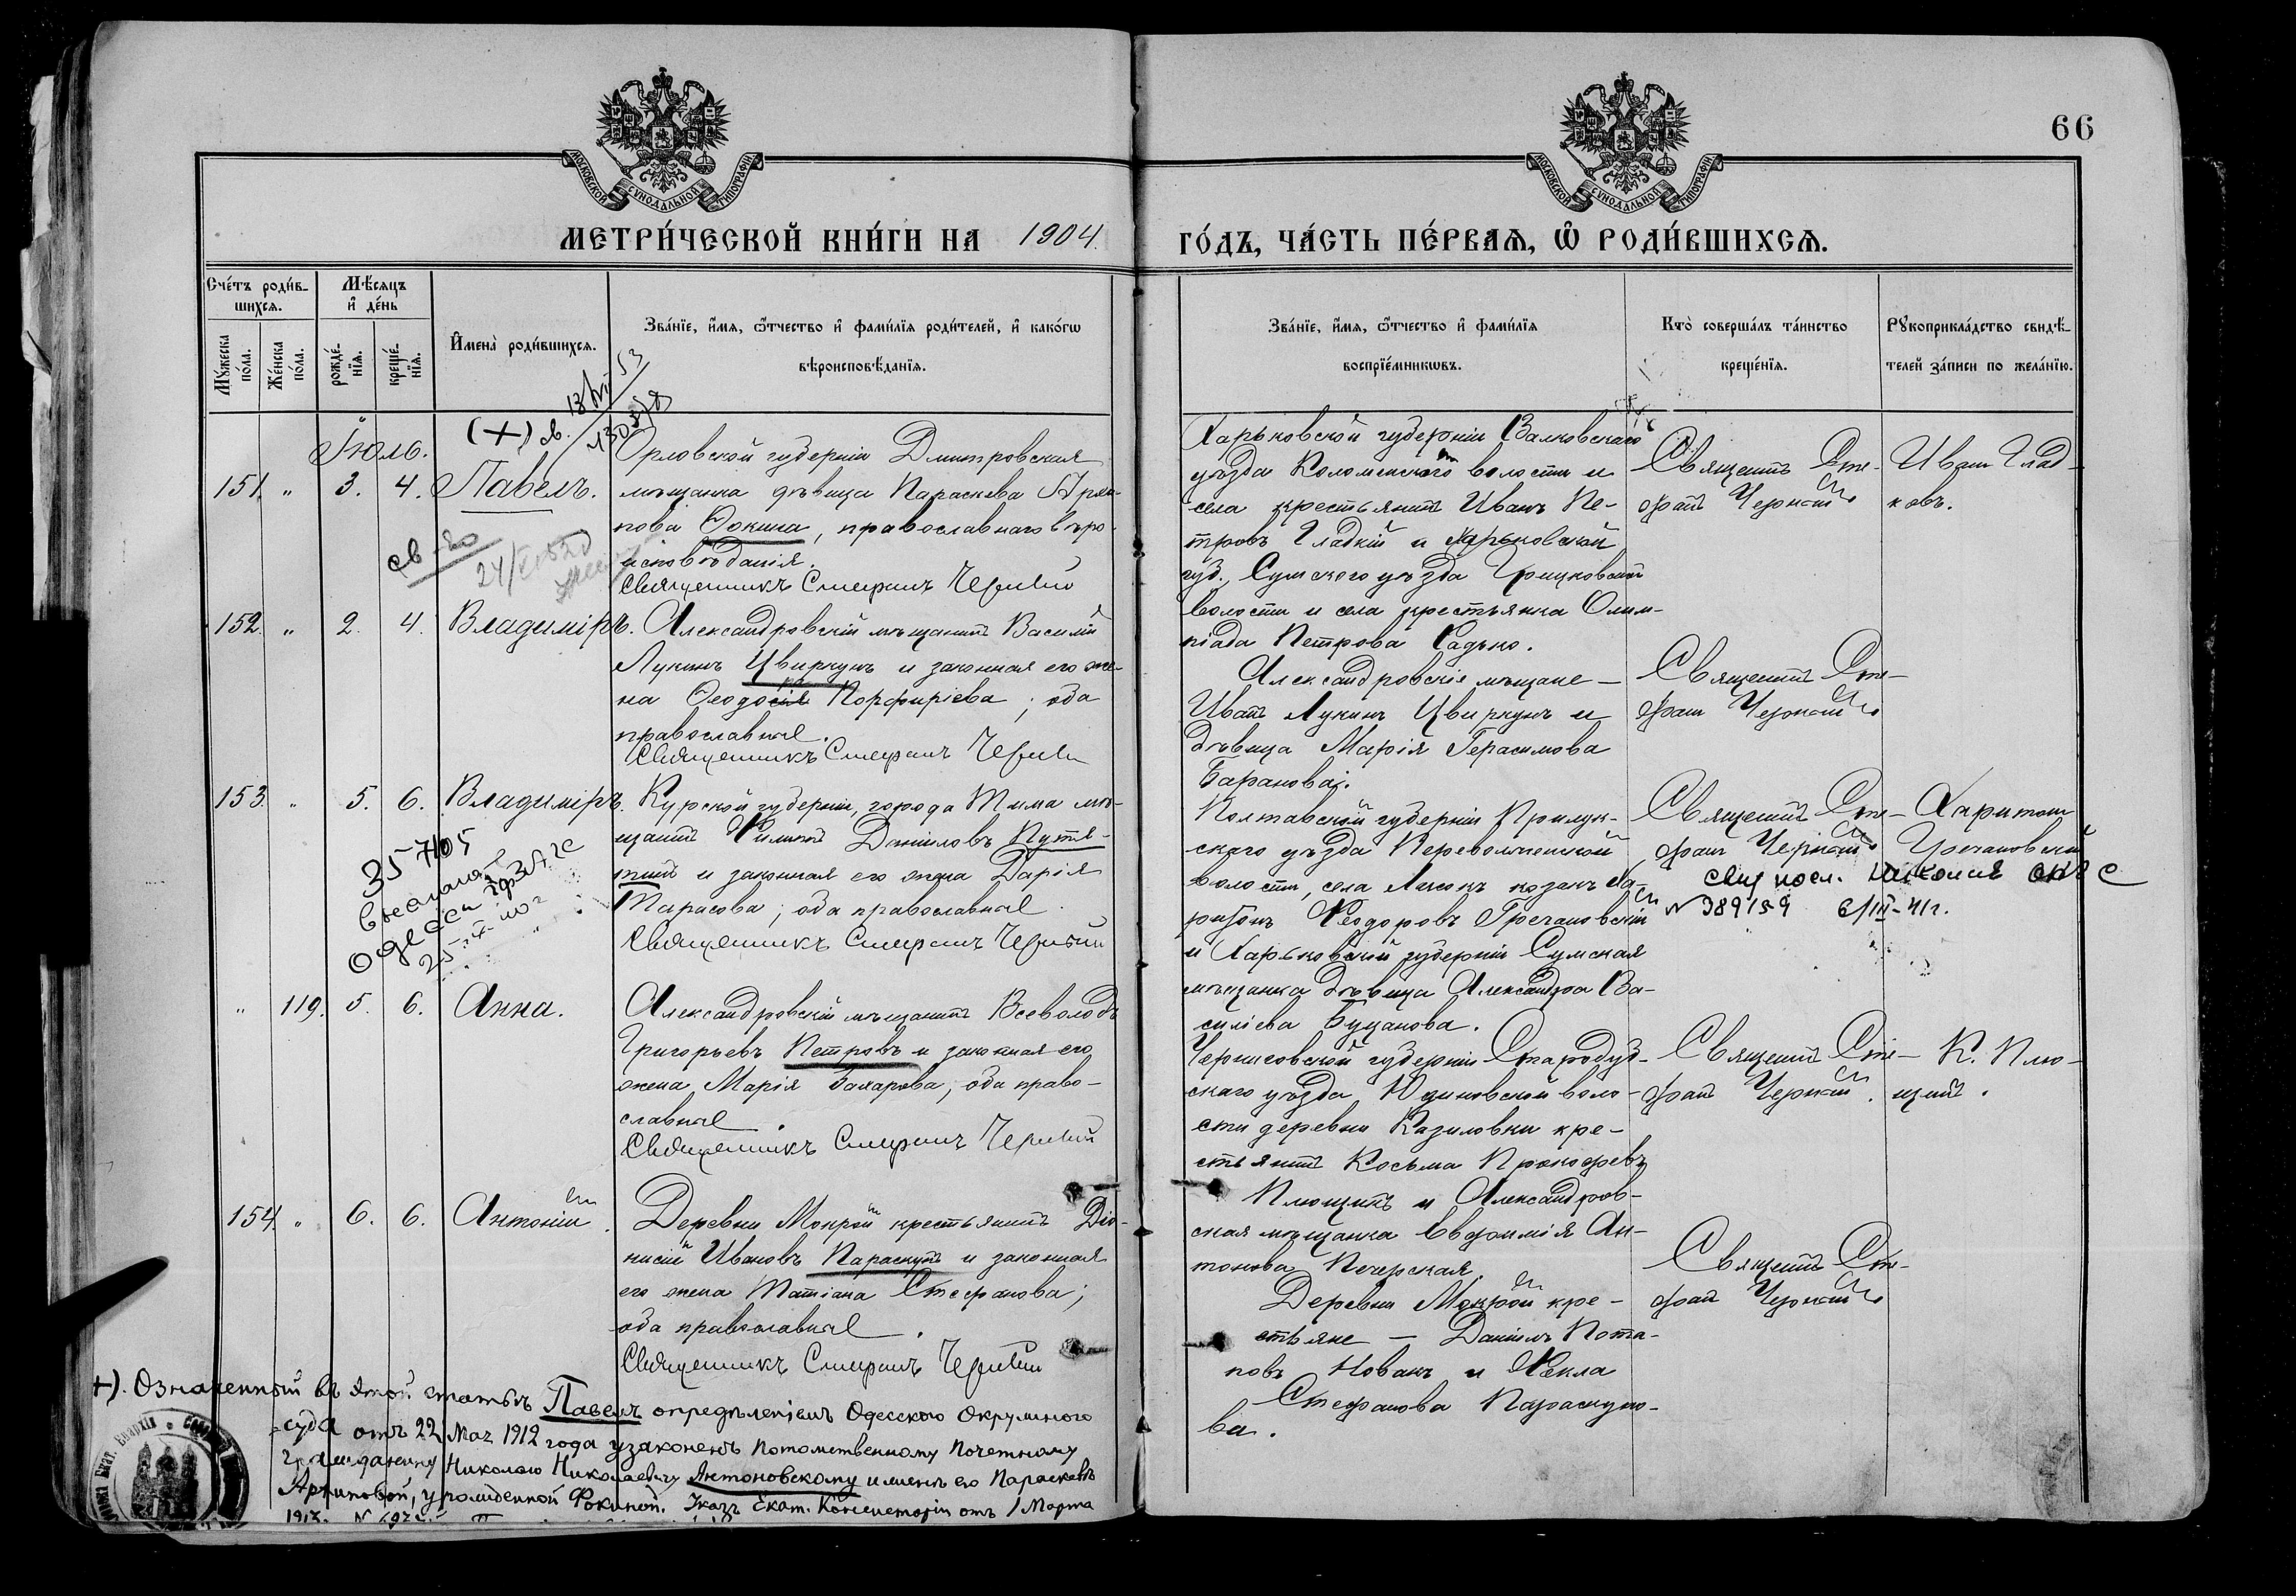 66
МОСКОВСКОЙ СѴНОДАЛЬНОЙ ТИПОГРАФІИ
МОСКОВСКОЙ СѴНОДАЛЬНОЙ ТИПОГРАФІИ
МЕТРИ́ЧЕСКОЙ КНИ́ГИ НА 1904.
ГО́ДЪ, ЧА́СТЬ ПЕ́РВАѦ, Ѡ РОДИ́ВШИХСѦ.
Сче́тъ роди́в-
шихсѧ.
Мѣ́сѧцъ
и҆ де́нь
Мꙋжеска по́ла.
Же́нска по́ла.
рожде́-нїѧ.
креще́-нїѧ.
И҆мена̀ роди́вшихсѧ.
Зва́нїе, и҆́мѧ, ѻ҆́тчество и҆ фами́лїѧ роди́телей, и҆ како́гѡ
вѣроисповѣ́данїѧ.
Зва́нїе, и҆́мѧ, ѻ҆́тчество и҆ фами́лїѧ
воспрїе́мникѡвъ.
Кто̀ соверша́лъ та́инство
креще́нїѧ.
Рꙋкоприкла́дство свидѣ́-
телей за́писи по жела́нїю.
Іюль.
(+) св.
151. " 3. 4. Павелъ.
Орловской губерніи Дмитровская
мѣщанка дѣвица Параскева Архи-
пова Ѳокина, православнаго вѣро-
исповѣданія.
Священникъ Стефанъ Черный
Харьковской губерніи Валковскаго
уѣзда Коломенской волости и
села крестьянинъ Иванъ Пе-
тровъ Гладкій и Харьковской
губ. Сумского уѣзда Грицковской
волости и села крестьянка Олим-
піада Петрова Садько.
Священникъ Сте-
фанъ Черный
Иван Глад-
ковъ.
св-во
152. " 2. 4. Владиміръ.
Александровскій мѣщанинъ Василій
Лукинъ Цвиркунъ и законная его же-
на Ѳеодосія Порфиріева; оба
православные.
Священникъ Стефанъ Черный
Александровскіе мѣщане –
Иванъ Лукинъ Цвиркунъ и
дѣвица Марія Герасимова
Баранова.
Священникъ Сте-
фанъ Черный
153. " 5. 6. Владиміръ.
Курской губерніи, города Тима мѣ-
щанинъ Филиппъ Даниловъ Путя-
тинъ и законная его жена Дарія
Тарасова; оба православные.
Священникъ Стефанъ Черный
357105
Одесса
Полтавской губерніи Прилук-
скаго уѣзда Переволоченской
волости, села козакъ Ха-
ритонъ Ѳеодоровъ Гречановскій
и Харьковской губерніи Сумская
мѣщанка дѣвица Александра Ва-
силіева Буцанова.
Священникъ Сте-
фанъ Черный
Харитонъ
Гречановскій
№ 989159 6/III-41г.
" 119. 5. 6. Анна.
Александровскій мѣщанинъ Всеволодъ
Григорьевъ Петровъ и законная его
жена Марія Захарова; оба право-
славные.
Священникъ Стефанъ Черный
Черниговской губерніи Стародуб-
скаго уѣзда, Юдиновской воло-
сти деревни Казиловки кре-
стьянинъ Косьма Прокофьевъ
Плющикъ и Александров-
ская мѣщанка Евфимія Ан-
тонова Печерская.
Священникъ Сте-
фанъ Черный.
К. Плю-
щикъ.
154. " 6. 6. Антоній.
Деревни Мокрой крестьянинъ Діо-
нисій Ивановъ Параскунъ и законная
его жена Татіана Стефанова;
оба православные.
Священникъ Стефанъ Черный
Деревни Мокрой кре-
стьяне – Даніилъ Пота-
повъ Новакъ и Ѳекла
Стефанова Параскуно-
ва.
Священникъ Сте-
фанъ Черный
+). Означенный въ этой статьѣ Павелъ опредѣленіемъ Одесскаго Окружнаго
суда отъ 22 Мая 1912 года узаконенъ потомственному почетному
гражданину Николаю Николаевичу Антоновскому и женѣ его Параскевѣ
Архиповой, урожденной Фокиной. Указъ Екат. Консисторіи отъ 1 Марта